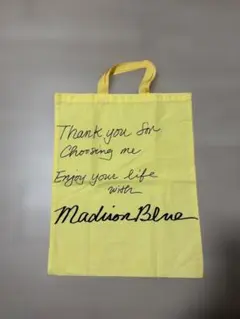 Thank you for
Choosing me
Enjoy your life
with
MadisonBlue